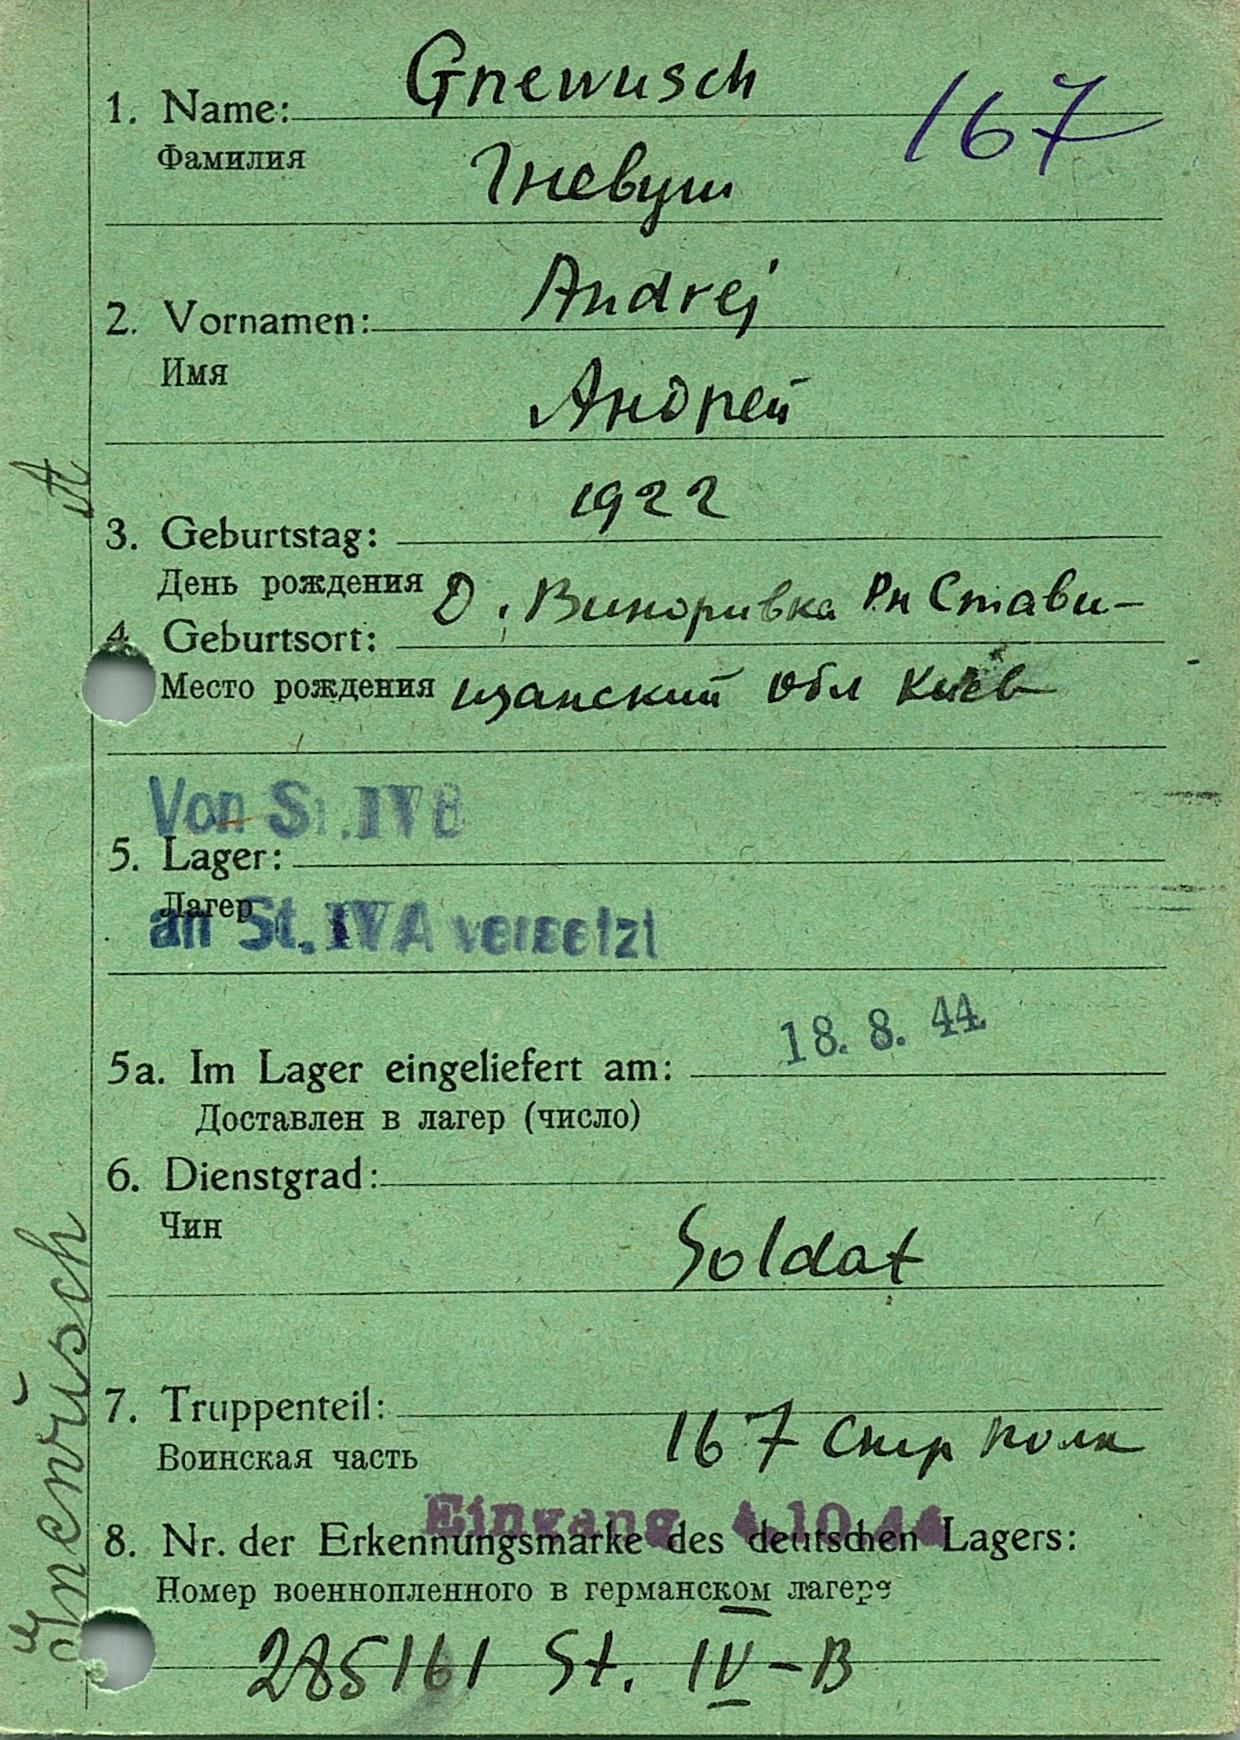 Gnewusch
1. Name:
167
Фамилия
Гневуш
Andrej
2. Vornamen:
Имя
Андрей
A
1922
3. Geburtstag:
День рождения
Д. Виноривка Рн Стави-
4. Geburtsort:
Место рождения
щанский обл Киев
Von St. IV B
5. Lager:
Лагер
an St. IV A versetzt
18. 8. 44
5a. Im Lager eingeliefert am:
Доставлен в лагер (число)
6. Dienstgrad:
Чин
Soldat
7. Truppenteil:
Воинская часть
167 Стр полк
Eingang 4.10.44
8. Nr. der Erkennungsmarke des deutschen Lagers:
Номер военнопленного в германском лагере
285161 St. IV-B
Gnewusch